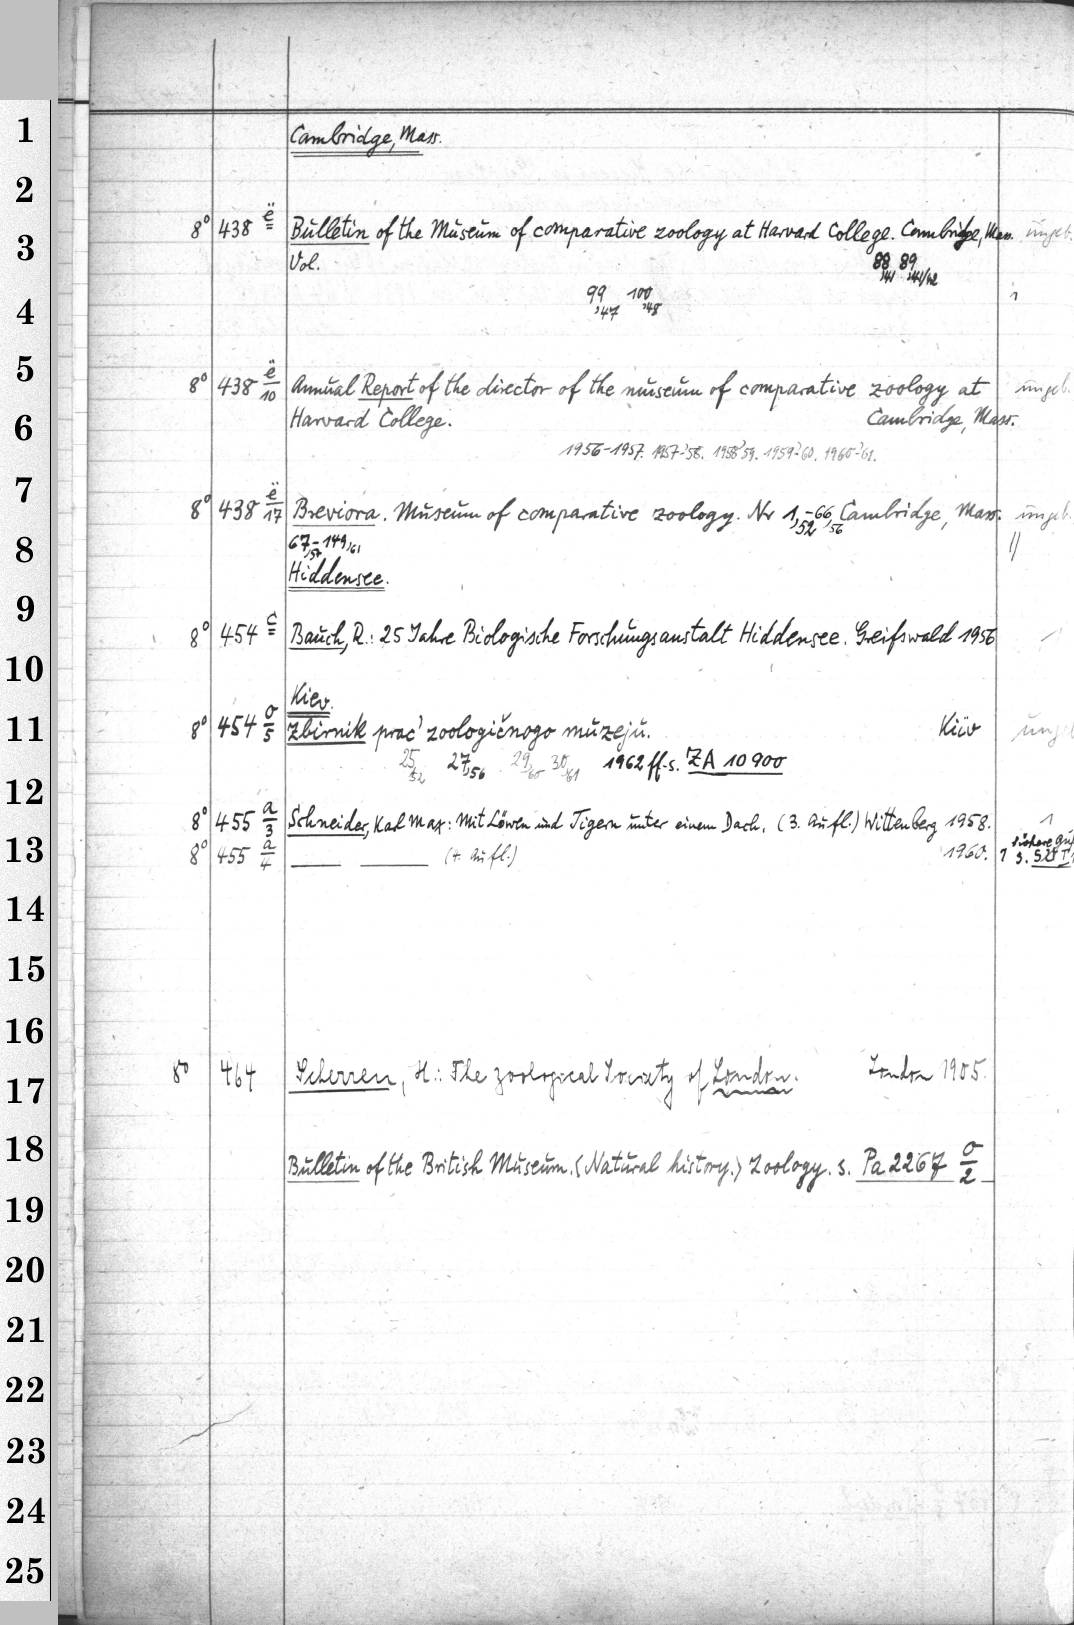 1
Cambridge, Mass.
2
8° 438 ë Bulletin of the Museum of comparative zoology at Harvard College. Cambridge, Mass. ungeb.
3
Vol. 88,41 89,41/42
99,47 100,48 1
4
5
8° 438 ë/10 Annual Report of the director of the museum of comparative zoology at ungeb.
6
Harvard College. Cambridge, Mass.
1956-1957. 1957-'58. 1958'59. 1959-'60. 1960-'61.
7
8° 438 ë/17 Breviora. Museum of comparative zoology. Nr 1,52-66,56 Cambridge, Mass. ungeb.
8
67,57-149,61
Hiddensee.
9
8° 454 c Bauch, R.: 25 Jahre Biologische Forschungsanstalt Hiddensee. Greifswald 1956
10
Kiev.
11
8° 454 o/5 Zbirnik prac' zoologičnogo muzeju. Kiiv ungeb
25,52 27,56 29,60 30,61 1962 ff. s. ZA 10 900
12
8° 455 a/3 Schneider, Karl Max: Mit Löwen und Tigern unter einem Dach. (3. Aufl.) Wittenberg 1958. 1
13
8° 455 a/4 (4. Aufl.) 1960. 1
14
15
16
8° 464 Scherren, H.: The zoological Society of London. London 1905.
17
18
Bulletin of the British Museum. (Natural history.) Zoology. s. Pa 2267 o/2
19
20
21
22
23
24
25